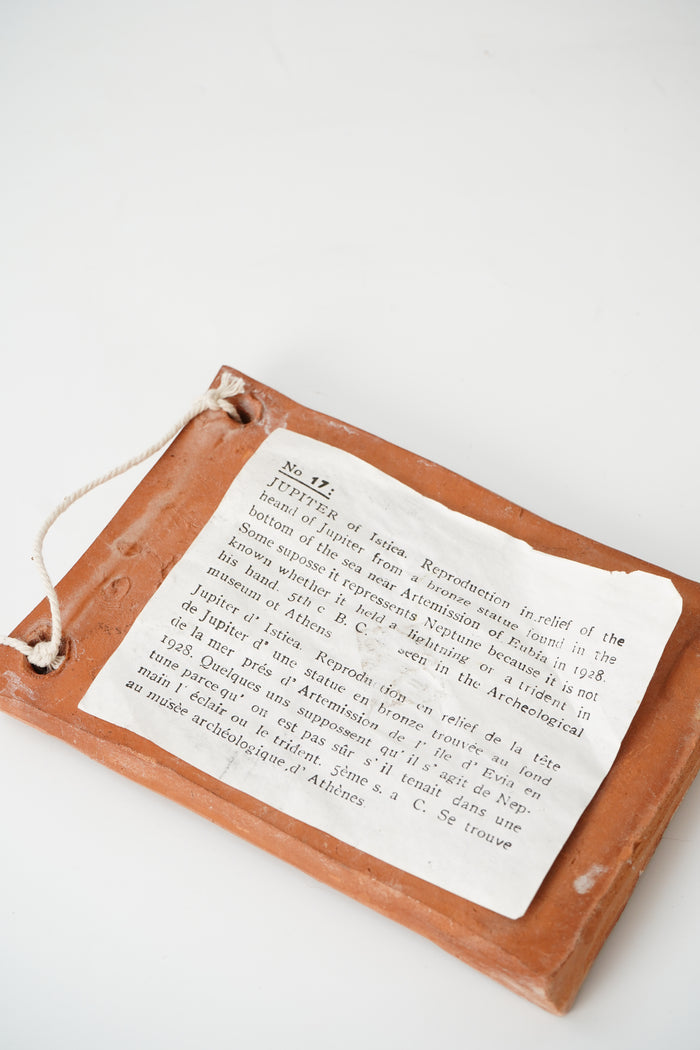 No 17:
JUPITER of Istiea. Reproduction in relief of the
heand of Jupiter from a bronze statue found in the
bottom of the sea near Artemission of Eubia in 1928.
Some suposse it repressents Neptune because it is not
known whether it held a lightning or a trident in
his hand. 5th c B. C. seen in the Archeological
museum ot Athens
Jupiter d' Istiea. Reproduction en relief de la tête
de Jupiter d' une statue en bronze trouvée au fond
de la mer prés d' Artemission de l' île d' Evia en
1928. Quelques uns suppossent qu' il s' agit de Nep-
tune parcequ' on est pas sûr s' il tenait dans une
main l' éclair ou le trident. 5ème s. a C. Se trouve
au musèe archéologique,d' Athènes